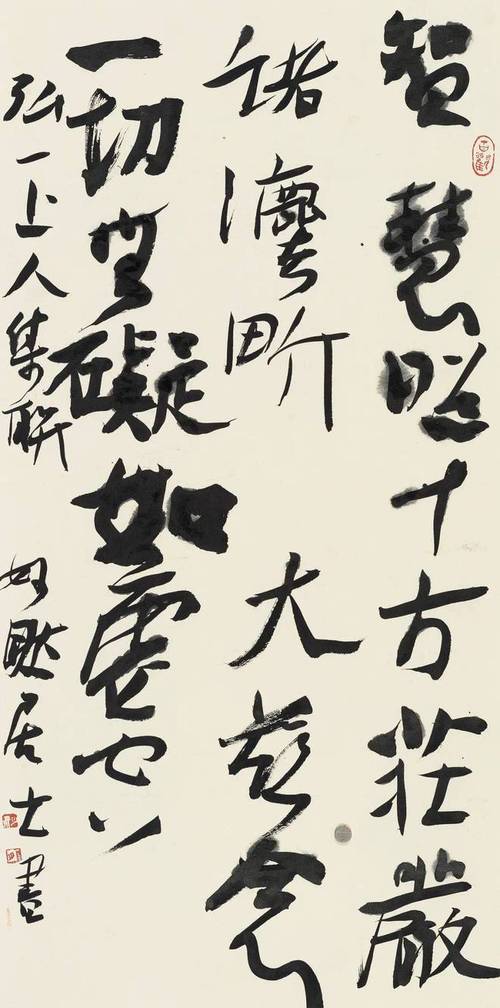 智慧照十方莊嚴
諸灋畍 大慈念
一切無礙如虛空
弘一上人集聯 如默居士書